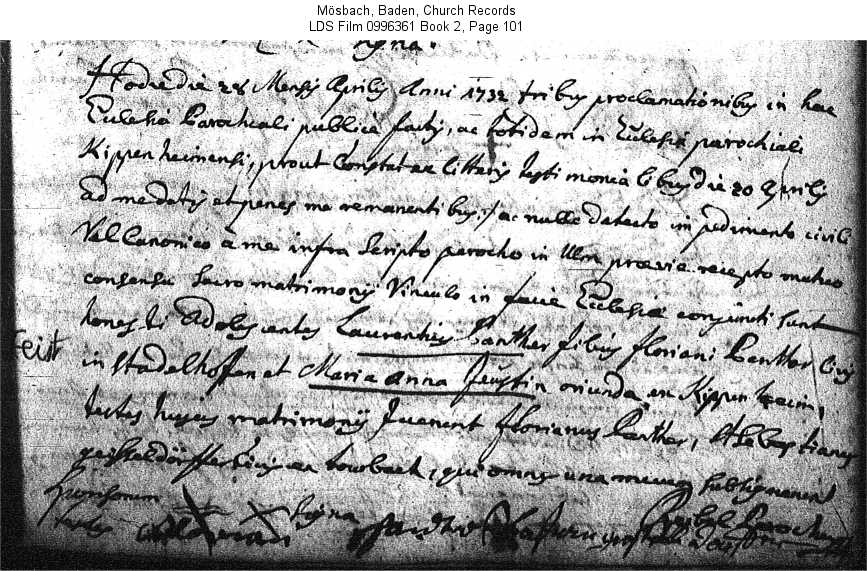 Mösbach, Baden, Church Records
LDS Film 0996361 Book 2, Page 101
Hodie die 28 Mensis Aprilis Anni 1732 tribus proclamationibus in hac
Ecclesia Parochiali publice factis, ac totidem in Ecclesia parochiali
Kippenheimensi, prout Constat ex litteris testimonialibus die 20 Aprilis
ad me datis et penes me remanentibus :/ ac nullo detecto inpedimento civili
Vel Canonico à me infra Scripto parocho in Ulm praevie recepto mutuo
consensu Sacro matrimonij Vinculo in facie Ecclesiae conjuncti Sunt
honesti Adolescentes Laurentius Panther filius floriani Panther Civis
eist
in Stadelhoffen et Maria Anna Feustin oriunda ex Kippenheim,
testes hujus matrimonij fuerunt florianus Panther, et Sebastianus
civis ex, qui omnes una mecum subsignarunt
Signa
testis